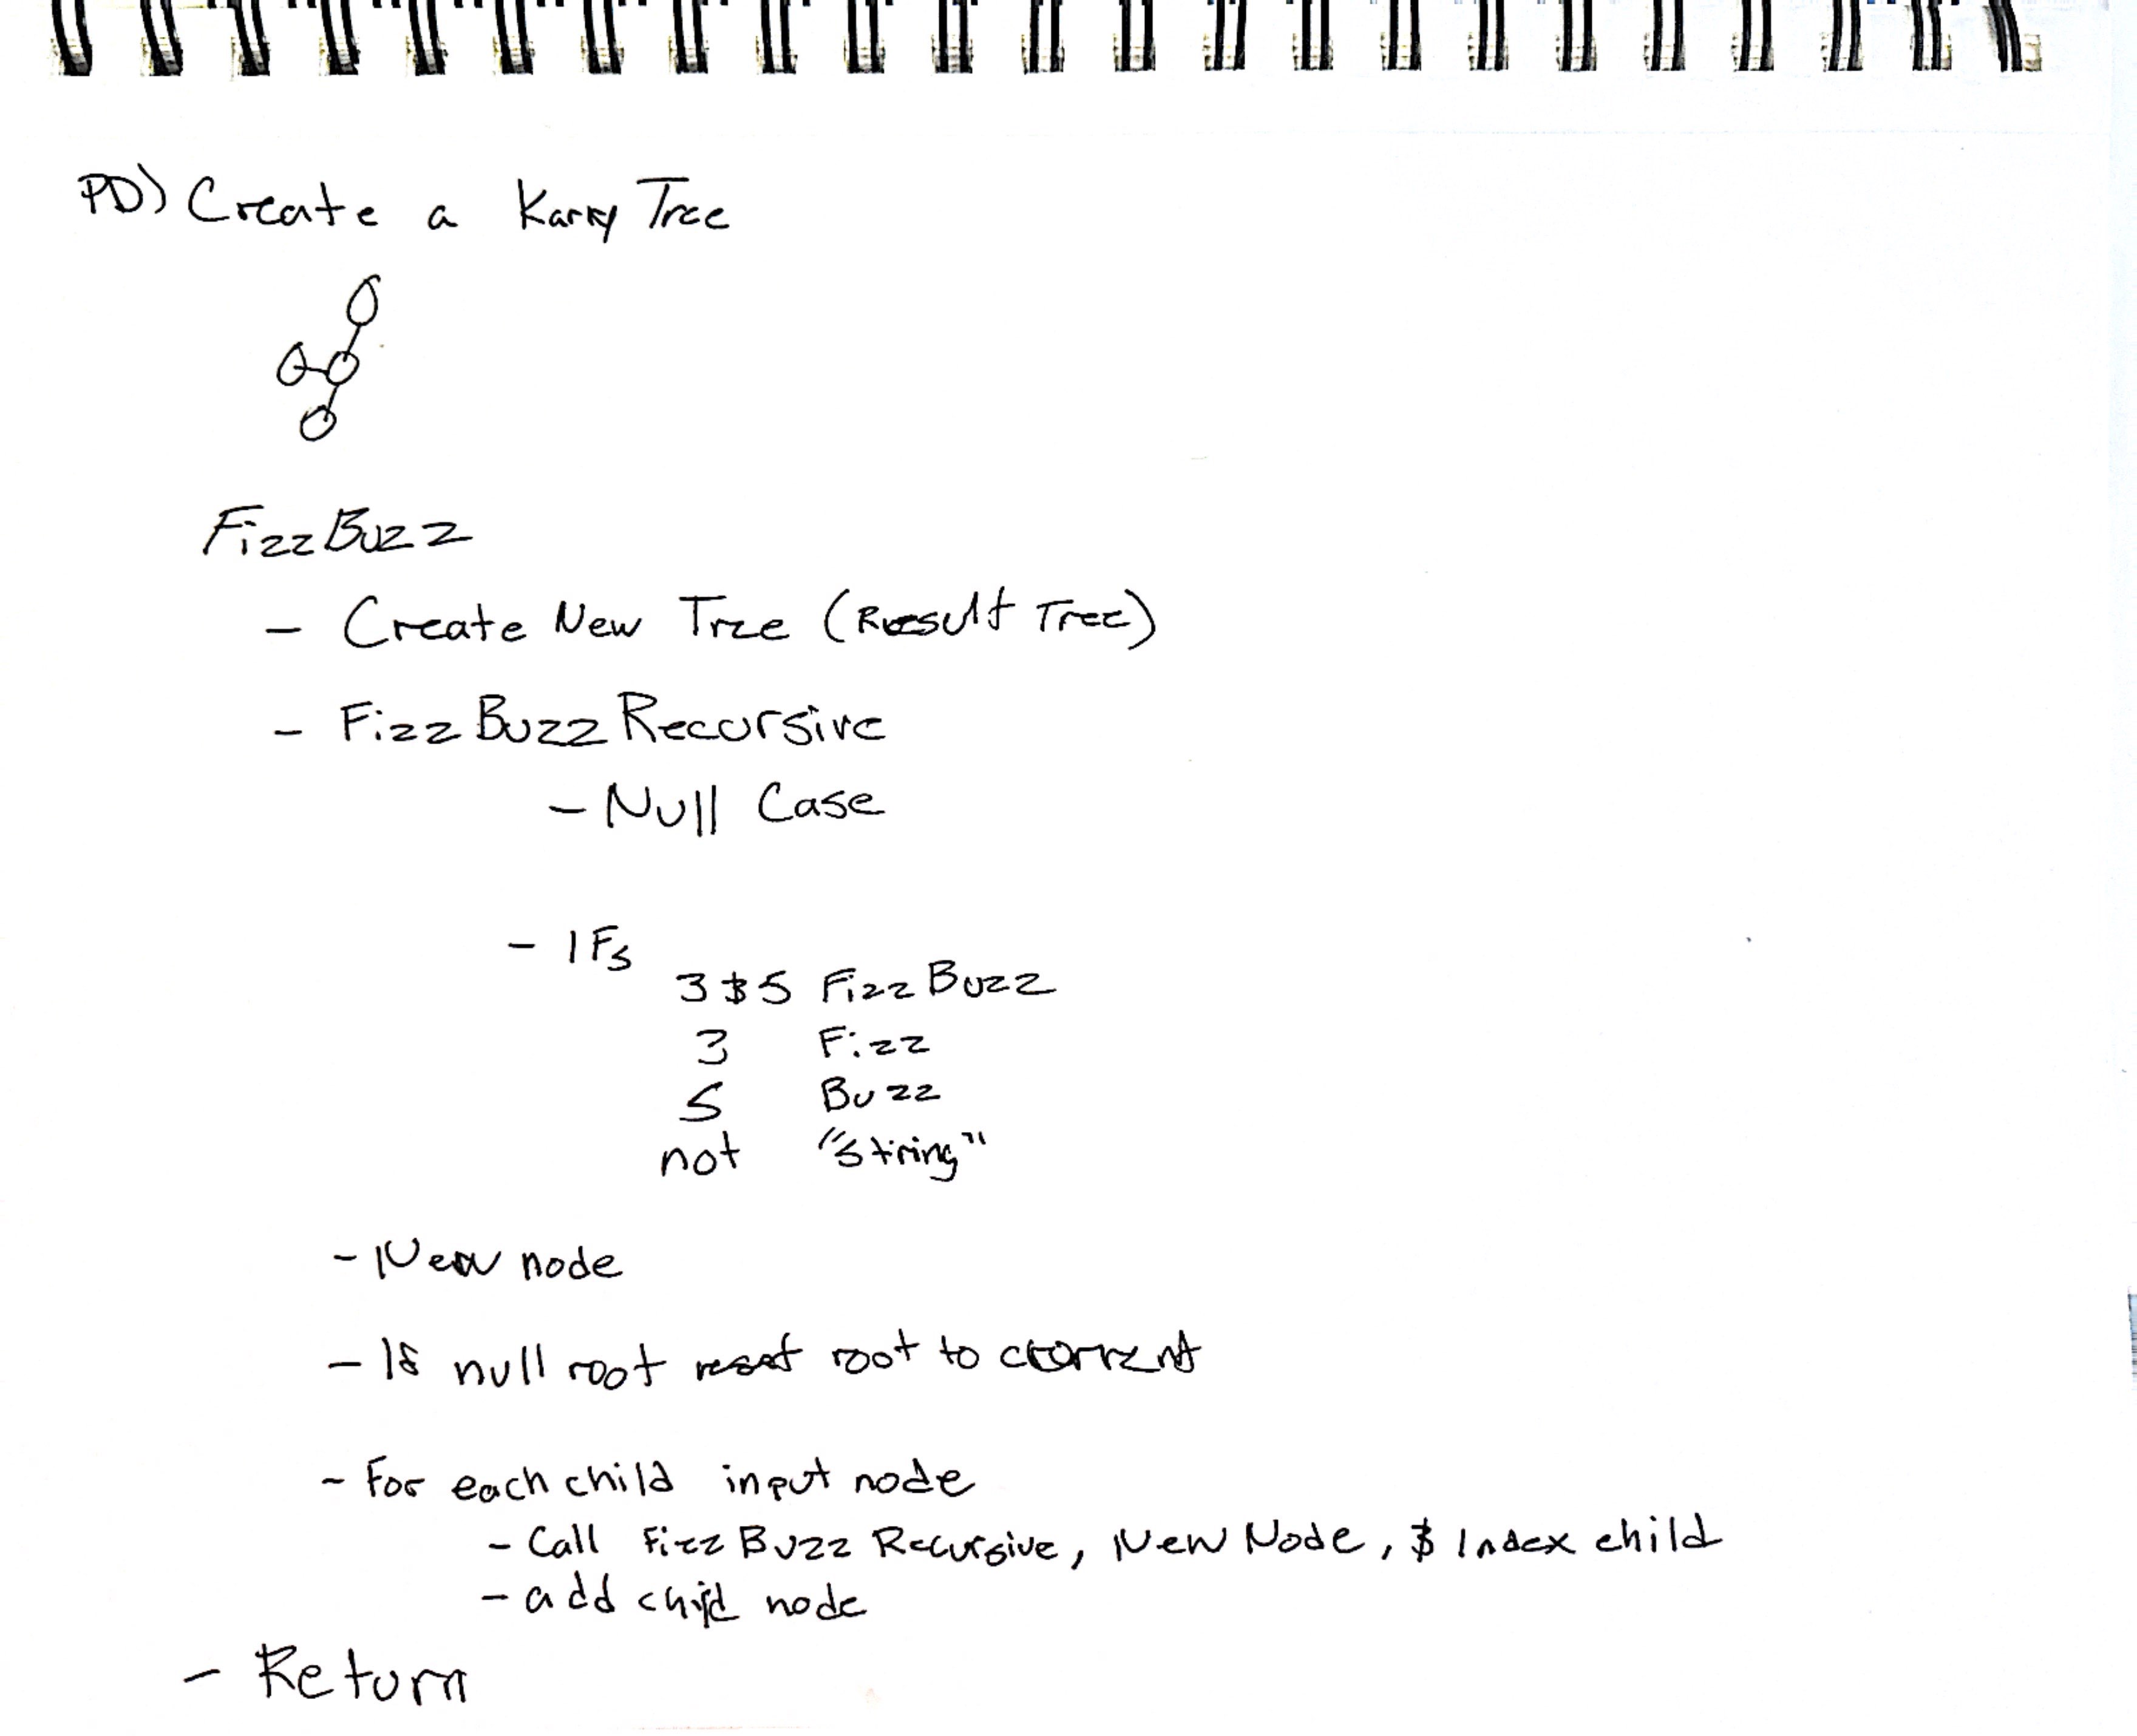 PD) Create a Karry Tree
FizzBuzz
- Create New Tree (Result Tree)
- FizzBuzz Recursive
- Null Case
- IFs
3 & 5 FizzBuzz
3 Fizz
5 Buzz
not "String"
- New node
- If null root reset root to current
- For each child input node
- Call FizzBuzz Recursive, New Node, & Index child
- add child node
- Return